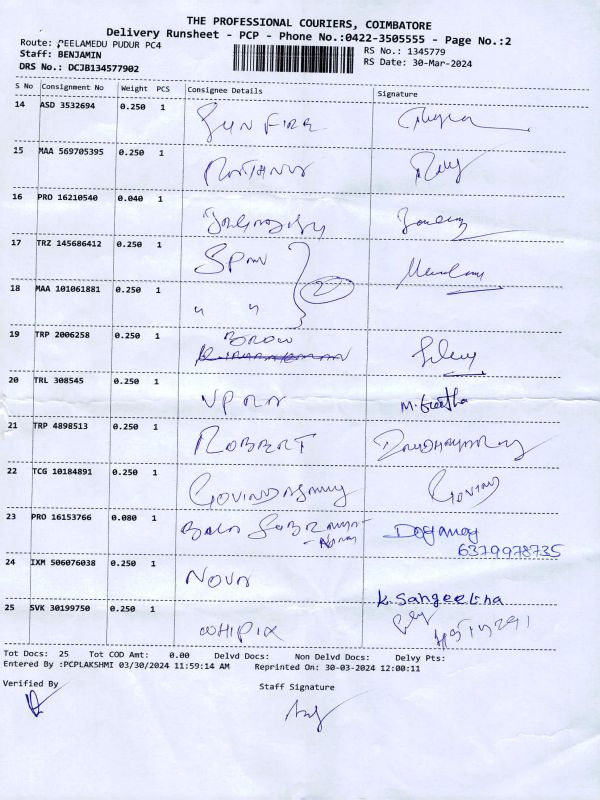 THE PROFESSIONAL COURIERS, COIMBATORE
Delivery Runsheet - PCP - Phone No.:0422-3505555 - Page No.:2
Route: PEELAMEDU PUDUR PC4
Staff: BENJAMIN
RS No.: 1345779
DRS No.: DCJB134577902
RS Date: 30-Mar-2024
S No Consignment No Weight PCS Consignee Details Signature
14 ASD 3532694 0.250 1 SUN FIRE
15 MAA 569705395 0.250 1
16 PRO 16210540 0.040 1
17 TRZ 145686412 0.250 1 SPAN
18 MAA 101061881 0.250 1 " " 2
19 TRP 2006258 0.250 1
20 TRL 308545 0.250 1 M. Geetha
21 TRP 4898513 0.250 1 ROBERT
22 TCG 10184891 0.250 1 GOVINDASAMY GOVIND
23 PRO 16153766 0.080 1 BALA
6379978735
24 IXM 506076038 0.250 1 NOVA
K. Sangeetha
25 SVK 30199750 0.250 1 WHIPIX
Tot Docs: 25 Tot COD Amt: 0.00 Delvd Docs: Non Delvd Docs: Delvy Pts:
Entered By :PCPLAKSHMI 03/30/2024 11:59:14 AM Reprinted On: 30-03-2024 12:00:11
Verified By Staff Signature